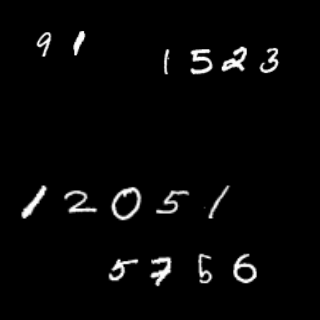 91
1523
12051
5756